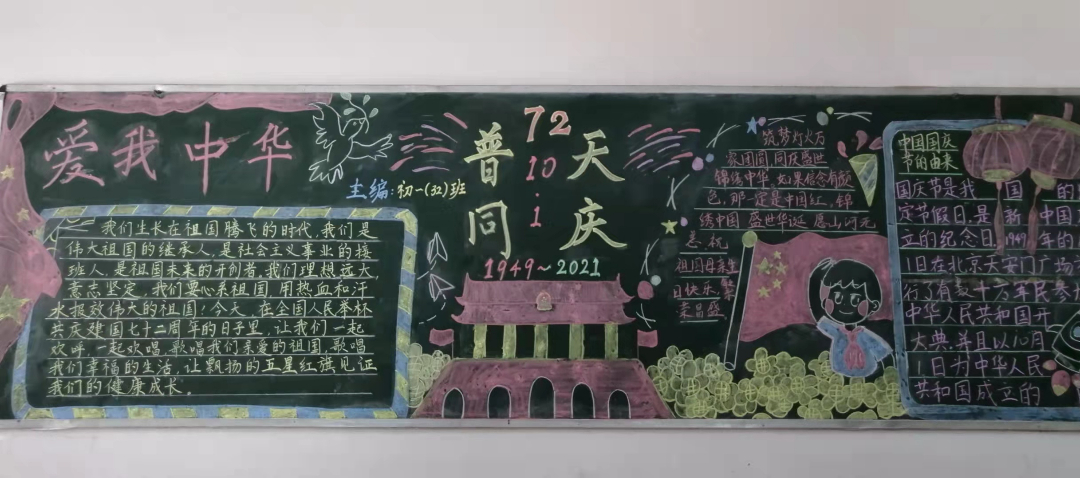 爱我中华
主编:初一(32)班
我们生长在祖国腾飞的时代,我们是
伟大祖国的继承人,是社会主义事业的接
班人,是祖国未来的开创者,我们理想远大
意志坚定,我们要心系祖国,用热血和汗
水报效伟大的祖国!今天,在全国人民举杯
共庆建国七十二周年的日子里,让我们一起
欢呼,一起欢唱,歌唱我们亲爱的祖国,歌唱
我们幸福的生活,让飘扬的五星红旗见证
我们的健康成长。
72
10·1
普天
同庆
1949~2021
筑梦灯火万
家团圆,同庆盛世
锦绣中华,如果信念有颜
色,那一定是中国红,锦
绣中国 盛世华诞 愿山河无
恙,祝
祖国母亲生
日快乐,繁
荣昌盛
中国国庆
节的由来
国庆节是我国的
定节假日,是新中国
立的纪念日,1949年的
1日在北京天安门广场
行了有数十万军民参
中华人民共和国开
大典,并且以10月
1日为中华人民
共和国成立的